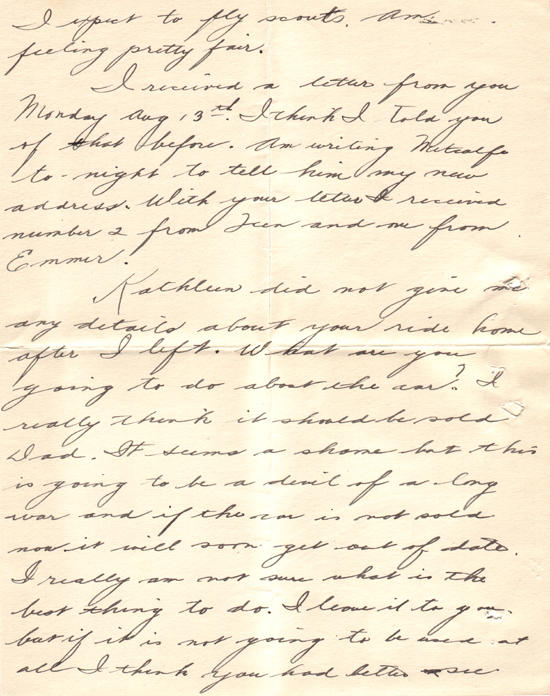 I expect to fly scouts. Am
feeling pretty fair.
I received a letter from you
Monday Aug 13th. I think I told you
of that before. Am writing Metcalfe
to-night to tell him my new
address. With your letter I received
number 2 from Teen and one from
Emmer.
Kathleen did not give me
any details about your ride home
after I left. What are you
going to do about the car? I
really think it should be sold
Dad. It seems a shame but this
is going to be a devil of a long
war and if the car is not sold
now it will soon get out of date.
I really am not sure what is the
best thing to do. I leave it to you.
but if it is not going to be used at
all I think you had better see